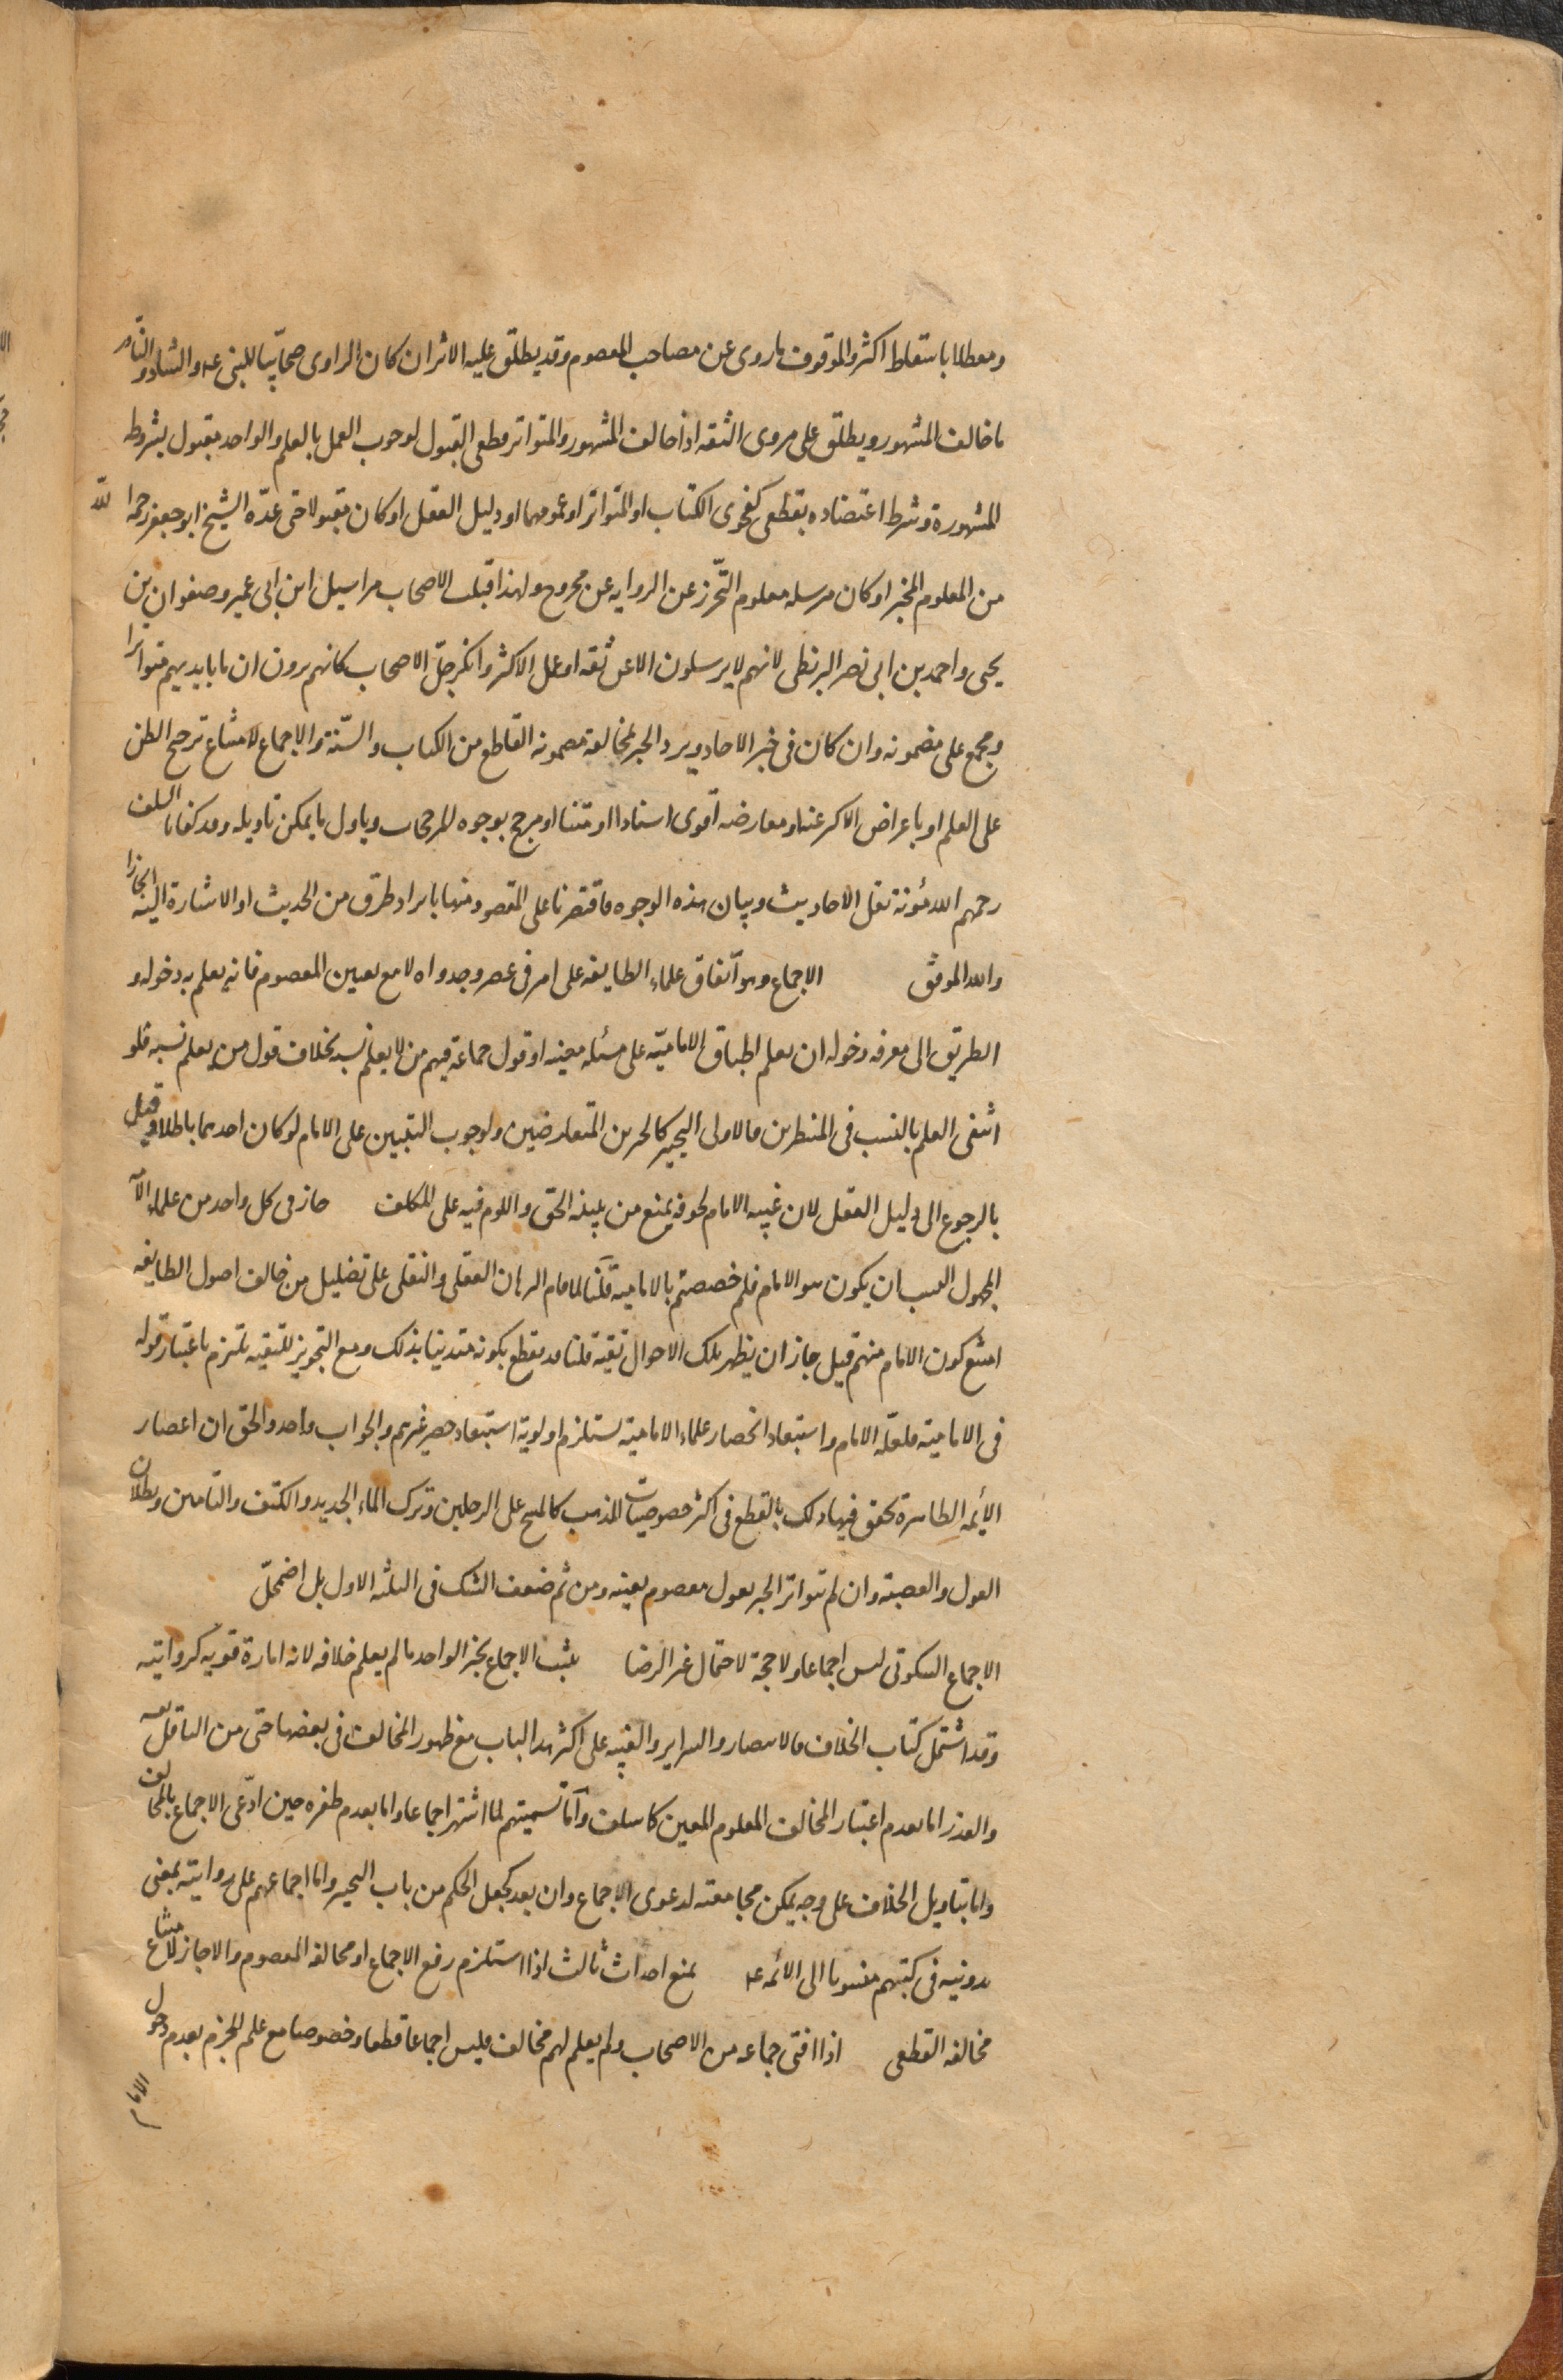 ومعطلا باسقاط اكثر والموقوف ما روى عن مصاحب المعصوم وقد يطلق عليه الاثر ان كان الراوى صحابيا للنبى ع م والشاذ والنادر
ما خالف المشهور ويطلق على مروى الثقه اذا خالف المشهور والمتواتر قطعى القبول لوجوب العمل بالعلم والواحد مقبول بشروطه
المشهورة وشرط اعتضاده بقطعى كفحوى الكتاب او المتواتر او عمومهما او دليل العقل او كان مقبولا حتى عدّه الشيخ ابو جعفر رحمه الله
من المعلوم المخبر او كان مرسله معلوم التحرّز عن الروايه عن مجروح ولهذا قبلت الاصحاب مراسيل ابن ابى عمير وصفوان بن
يحيى واحمد بن ابى نصر البزنطى لانهم لا يرسلون الا عن ثقه او عمل الاكثر وانكر جلّ الاصحاب كانهم يرون ان ما بايديهم متواترا
ومجمع على مضمونه وان كان فى خبر الاحاد ويرد الخبر لمخالفة مضمونه القاطع من الكتاب والسّنة والاجماع لامتناع ترجيح الظن
على العلم او باعراض الاكثر عنه او معارضه اقوى اسنادا او متنا او مرجح بوجوه المرجحات وياول ما يمكن تاويله وقد كفانا السلف
رحمهم الله مؤنة نقل الاحاديث وبيان هذه الوجوه فاقتصرنا على المقصود منها بايراد طرق من الحديث او الاشارة اليه ايجازا
والله الموفق الاجماع وهو اتفاق علماء الطايفه على امر فى عصر وجدواه لا مع تعيين المعصوم فانه يعلم به دخوله و
الطريق الى معرفه دخوله ان يعلم اطباق الاماميّه على مسئله معينه او قول جماعة فيهم من لا يعلم نسبه بخلاف قول من يعلم نسبه فلو
انتفى العلم بالنسب فى الشطرين فالاولى التخيير كالخبرين المتعارضين ولوجوب التبيين على الامام لو كان احدهما باطلا وقيل
بالرجوع الى دليل العقل لان غيبه الامام لخوفه يمنع من تبينه الحق واللوم فيه على المكلف جاز فى كل واحد من علماء الامة
المجهول النسب ان يكون هو الامام فلم خصصتم بالاماميه قلنا لما قام البرهان العقلى والنقلى على تضليل من خالف اصول الطايفه
امتنع كون الامام منهم قيل جاز ان يظهر تلك الاحوال تقية قلنا قد يقطع بكونه متدينا بذلك ومع التجويز للتقيه نلتزم باعتبار قوله
فى الاماميه فلعلّه الامام واستبعاد انحصار علماء الاماميّه يستلزم اولوية استبعاد حصر غيرهم والجواب واحد والحق ان اعصار
الأيمّه الطاهرة تحقق فيها ذلك بالقطع فى اكثر خصوصيات المذهب كالمسح على الرجلين وترك الماء الجديد والكتف والتامين وبطلان
العول والعصبه وان لم يتواتر الخبر بقول معصوم بعينه ومن ثم ضعف الشك فى الثلثه الاول بل اضمحلّ
الاجماع السكوتى ليس اجماعا ولا حجة لاحتمال غير الرضا يثبت الاجماع بخبر الواحد ما لم يعلم خلافه لانه امارة قويه كروايته
وقد اشتمل كتاب الخلاف والانتصار والسراير والغنيه على اكثر هذا الباب مع ظهور المخالف فى بعضها حتى من الناقل نفسه
والعذر اما بعدم اعتبار المخالف المعلوم المعين كما سلف واما تسميتهم لما اشتهر اجماعا واما بعدم ظفره حين ادّعى الاجماع بالمخالف
واما بتاويل الخلاف على وجه يمكن مجامعته لدعوى الاجماع وان بعد كجعل الحكم من باب التخيير واما اجماعهم على روايته بمعنى
تدوينه فى كتبهم منسوبا الى الائمه ع م يمنع احداث ثالث اذا استلزم رفع الاجماع او مخالفه المعصوم والا جاز لامتناع
مخالفه القطعى اذا افتى جماعه من الاصحاب ولم يعلم لهم مخالف فليس اجماعا قطعا وخصوصا مع علم الجزم بعدم دخول
الامام